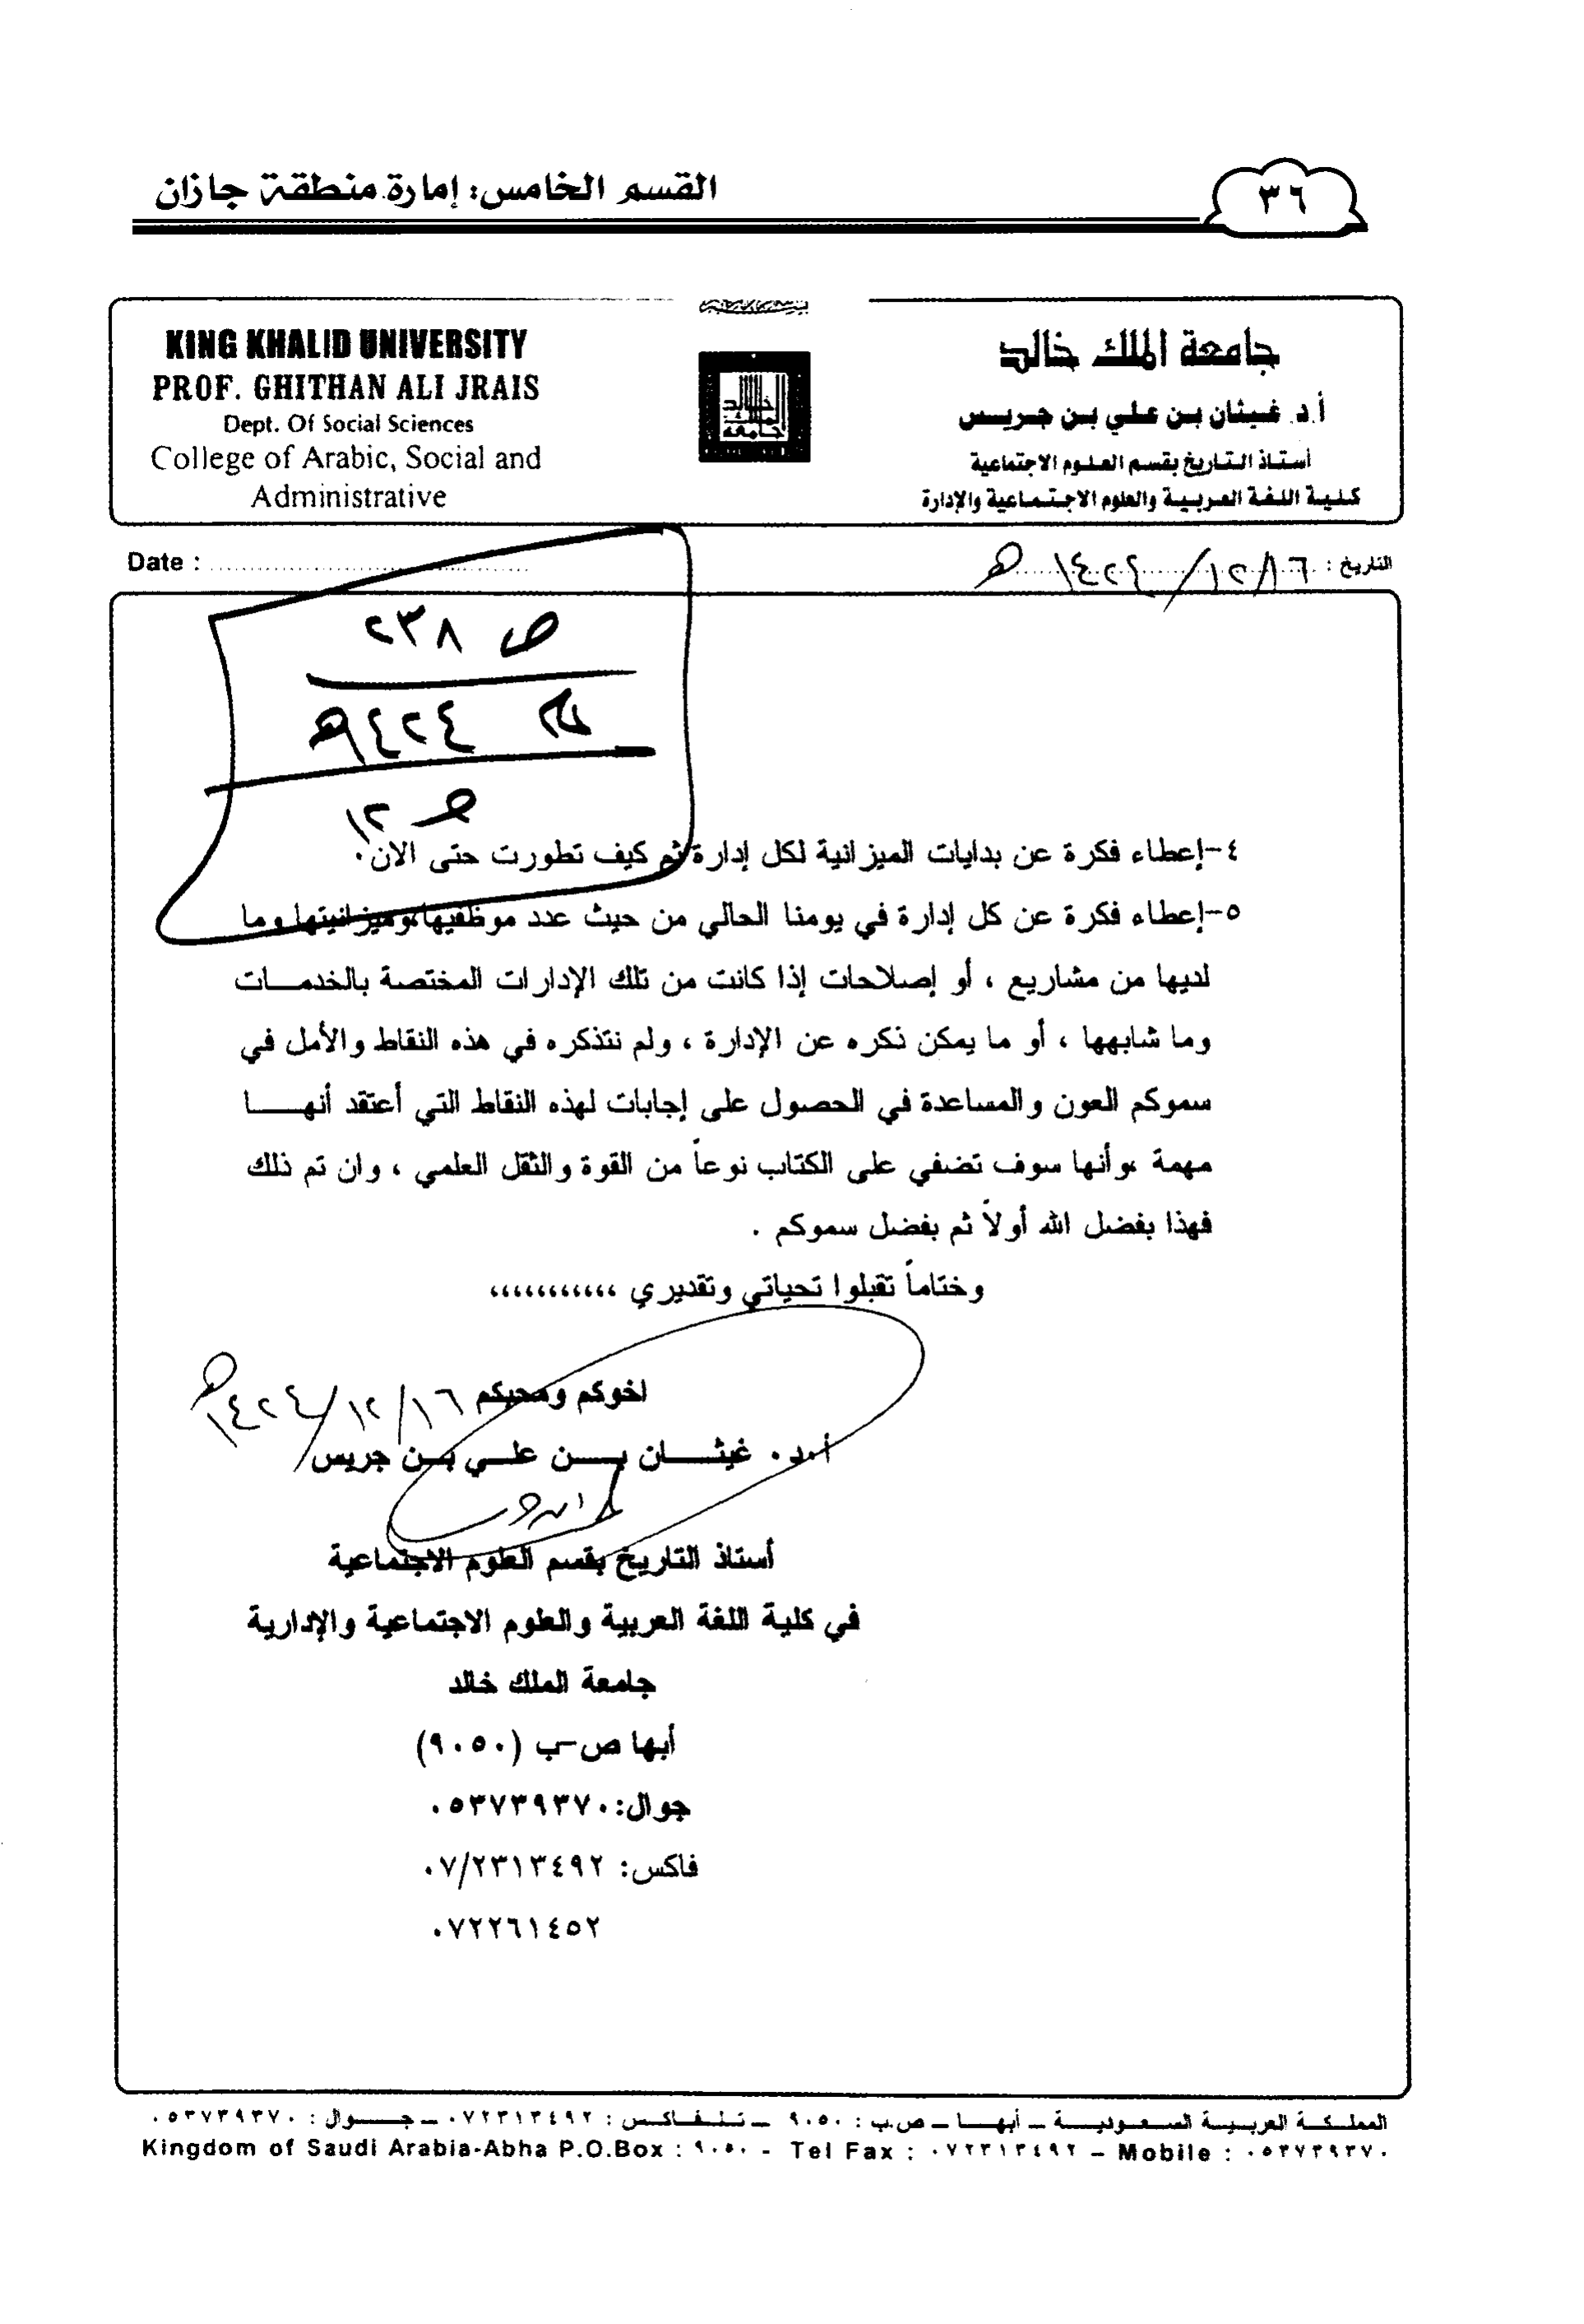 القسم الخامس: إمارة منطقة جازان
٣٦
جامعة الملك خالد
أ.د. غيثان بن علي بن جريس
أستاذ التاريخ بقسم العلوم الاجتماعية
كلية اللغة العربية والعلوم الاجتماعية والإدارة
خالد
الملك
جامعة
KING KHALID UNIVERSITY
PROF. GHITHAN ALI JRAIS
Dept. Of Social Sciences
College of Arabic, Social and
Administrative
التاريخ : ١٦/١٢/١٤٢٤هـ
Date :
ص ٢٣٨
١٤٢٤هـ
١٢
٤-إعطاء فكرة عن بدايات الميزانية لكل إدارة ثم كيف تطورت حتى الان.
٥-إعطاء فكرة عن كل إدارة في يومنا الحالي من حيث عدد موظفيها،وميزانيتها وما
لديها من مشاريع ، أو إصلاحات إذا كانت من تلك الإدارات المختصة بالخدمــات
وما شابهها ، أو ما يمكن ذكره عن الإدارة ، ولم نتذكره في هذه النقاط والأمل في
سموكم العون والمساعدة في الحصول على إجابات لهذه النقاط التي أعتقد أنهـــا
مهمة ،وأنها سوف تضفي على الكتاب نوعاً من القوة والثقل العلمي ، وان تم ذلك
فهذا بفضل الله أولاً ثم بفضل سموكم .
وختاماً تقبلوا تحياتي وتقديري ،،،،،،،،،،،
اخوكم ومحبكم ١٦/١٢/١٤٢٤هـ
أ.د. غيثـــان بـــن علـــي بـن جريس
أستاذ التاريخ بقسم العلوم الاجتماعية
في كلية اللغة العربية والعلوم الاجتماعية والإدارية
جامعة الملك خالد
أبها ص-ب (٩٠٥٠)
جوال:٠٥٣٧٣٩٣٧٠
فاكس: ٠٧/٢٣١٣٤٩٢
٠٧٢٢٦١٤٥٢
المملكة العربيـة السـعوديـــة ــ أبهـــا ــ ص.ب : ٩٠٥٠ ــ تـلـفـاكـس : ٠٧٢٣١٣٤٩٢ ــ جـــوال : ٠٥٣٧٣٩٣٧٠
Kingdom of Saudi Arabia-Abha P.O.Box : ٩٠٥٠ - Tel Fax : ٠٧٢٣١٣٤٩٢ – Mobile : ٠٥٣٧٣٩٣٧٠